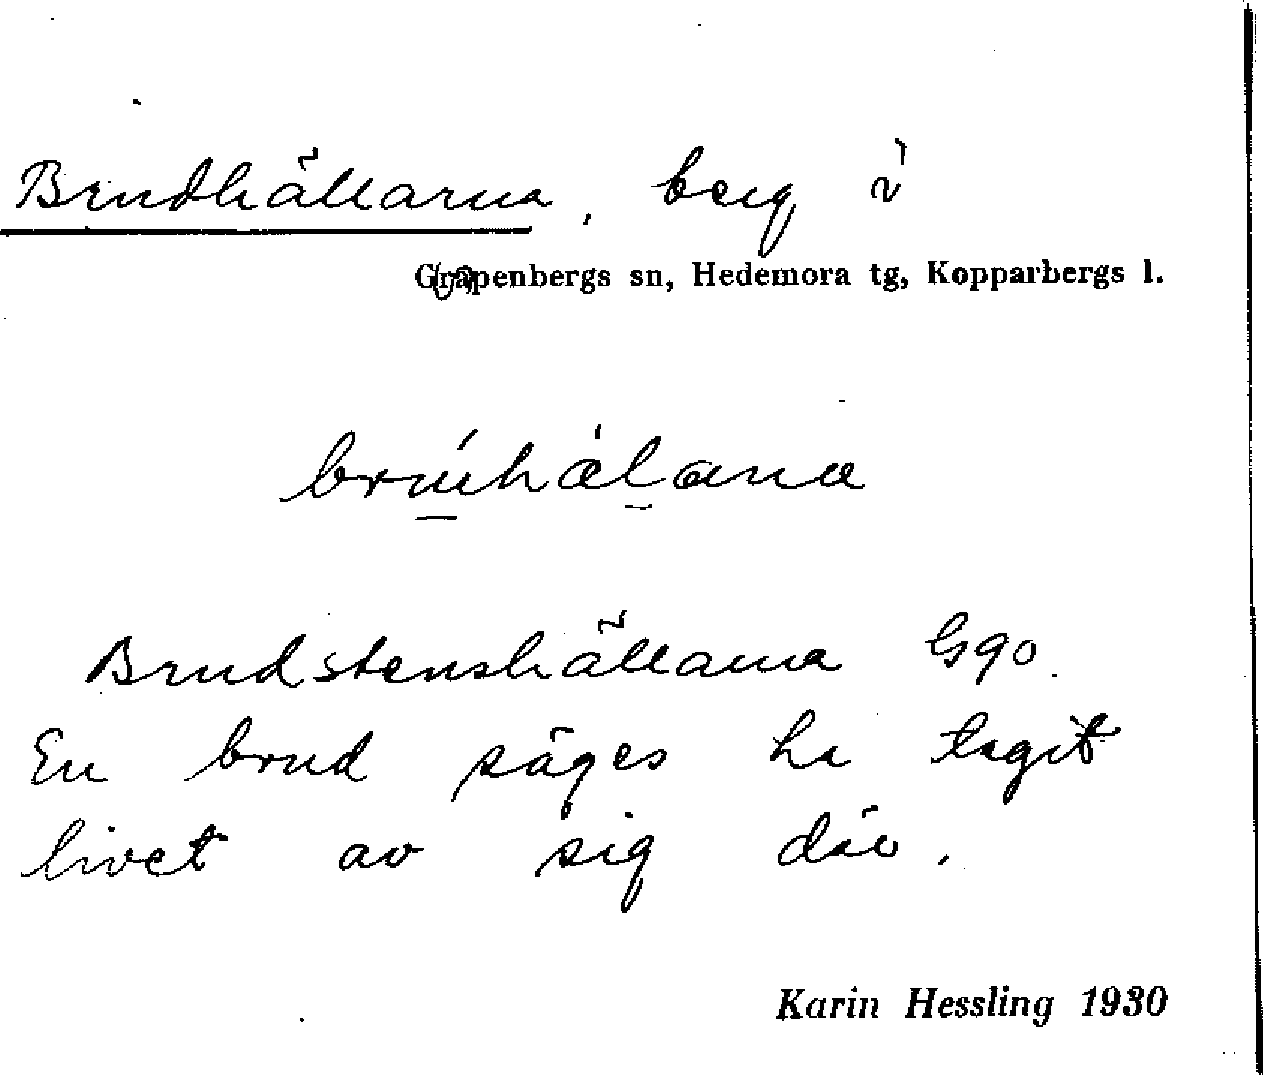 Brudhällarna, berg i
Garpenbergs sn, Hedemora tg, Kopparbergs l.
brúhälana
Brudstenshällarna Ggo.
En brud säges ha tagit
livet av sig där.
Karin Hessling 1930